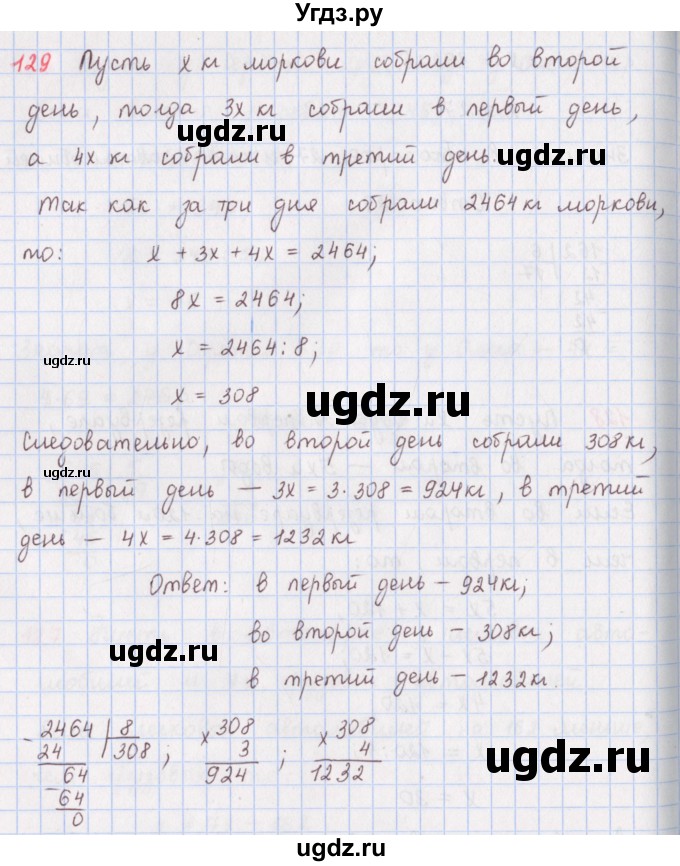 Угдз.ру
129 Пусть x кг моркови собрали во второй
день, тогда 3x кг собрали в первый день,
ugdz.ru
а 4x кг собрали в третий день.
ugdz.ru
Так как за три дня собрали 2464 кг моркови,
то: x + 3x + 4x = 2464;
8x = 2464;
x = 2464 : 8;
ugdz.ru
x = 308
ugdz.ru
Следовательно, во второй день собрали 308 кг,
в первый день — 3x = 3·308 = 924 кг, в третий
день — 4x = 4·308 = 1232 кг
Ответ: в первый день — 924 кг;
ugdz.ru
во второй день — 308 кг;
ugdz.ru
в третий день — 1232 кг.
- 2464 | 8 × 308 × 308
24 308 ; 3 ; 4
64 924 1232
- 64
0
ugdz.ru
ugdz.ru
ugdz.ru